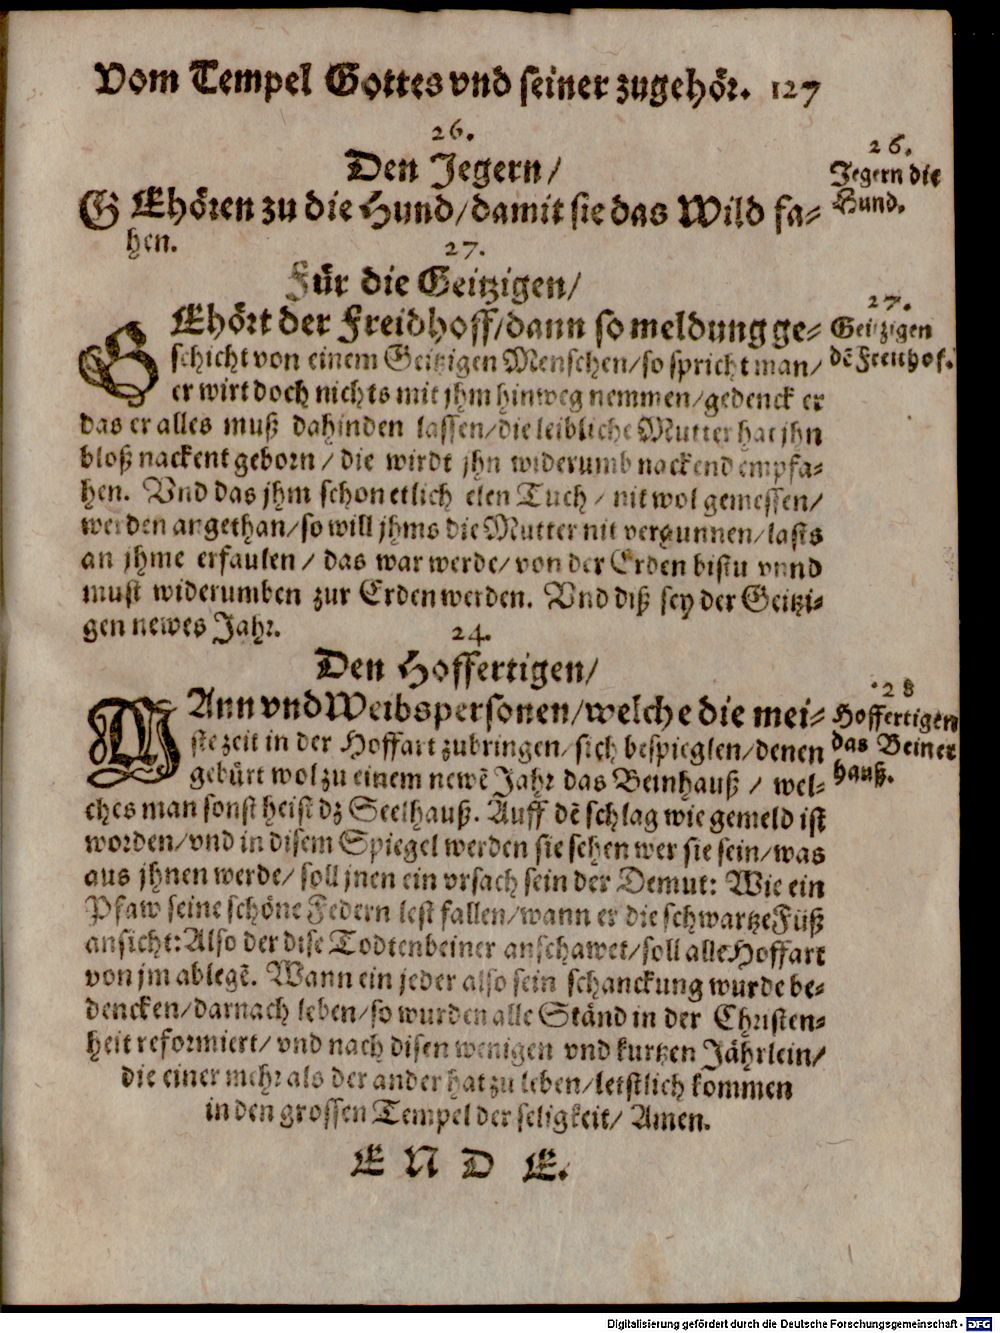 Vom Tempel Gottes vnd seiner zugehör. 127
26.
Den Jegern/
GEhören zu die Hund/damit sie das Wild fa-
hen.
26.
Jegern die
Hund.
27.
Für die Geitzigen/
GEhört der Freidhoff/dann so meldung ge-
schicht von einem Geitzigen Menschen/so spricht man/
er wirt doch nichts mit jhm hinweg nemmen/gedenck er
das er alles muß dahinden lassen/die leibliche Mutter hat jhn
bloß nackent geborn/die wirdt jhn widerumb nackend empfa-
hen. Vnd das jhm schon etlich elen Tuch/nit wol gemessen/
werden angethan/so will jhms die Mutter nit vergunnen/lasts
an jhme erfaulen/das war werde/von der Erden bistu vnnd
must widerumben zur Erden werden. Vnd diß sey der Geitzi-
gen newes Jahr.
27.
Geitzigen
dẽ Freithof.
24.
Den Hoffertigen/
MAnn vnd Weibspersonen/welche die mei-
ste zeit in der Hoffart zubringen/sich bespieglen/denen
gebürt wol zu einem newẽ Jahr das Beinhauß/wel-
ches man sonst heist dz Seelhauß. Auff dẽ schlag wie gemeld ist
worden/vnd in disem Spiegel werden sie sehen wer sie sein/was
aus jhnen werde/soll jnen ein vrsach sein der Demut: Wie ein
Pfaw seine schöne Federn lest fallen/wann er die schwartze Füß
ansicht: Also der dise Todtenbeiner anschawet/soll alle Hoffart
von jm ablegẽ. Wann ein jeder also sein schanckung wurde be-
dencken/darnach leben/so wurden alle Ständ in der Christen-
heit reformiert/vnd nach disen wenigen vnd kurtzen Jährlein/
die einer mehr als der ander hat zu leben/letstlich kommen
in den grossen Tempel der seligkeit/Amen.
28
Hoffertigen
das Beiner
hauß.
E N D E.
Digitalisierung gefördert durch die Deutsche Forschungsgemeinschaft - DFG